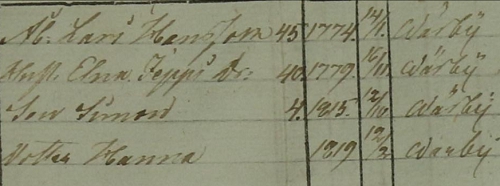 Åb. Lars Hansson 45. 1774. 14/1. Wärby
Hust. Elna Jeppsdr: 40. 1779. 16/11 Wärby
Son Simon 4. 1815. 12/10 Wärby
Dotter Hanna 1819 12/2 Wärby